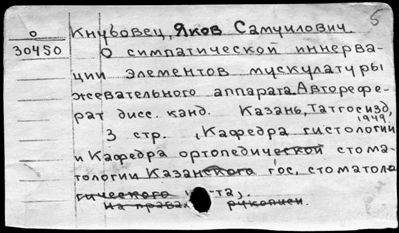 5
о Кнубовец, Яков Самуилович.
30450 О симпатической иннерва-
ции элементов мускулатуры
жевательного аппарата. Авторефе-
рат дисс. канд. Казань, Татгосизд,
1949.
3 стр. (Кафедра гистологии
и Кафедра ортопедической стома-
тологии Казанского гос. стоматоло
гического -та).
на правах рукописи.